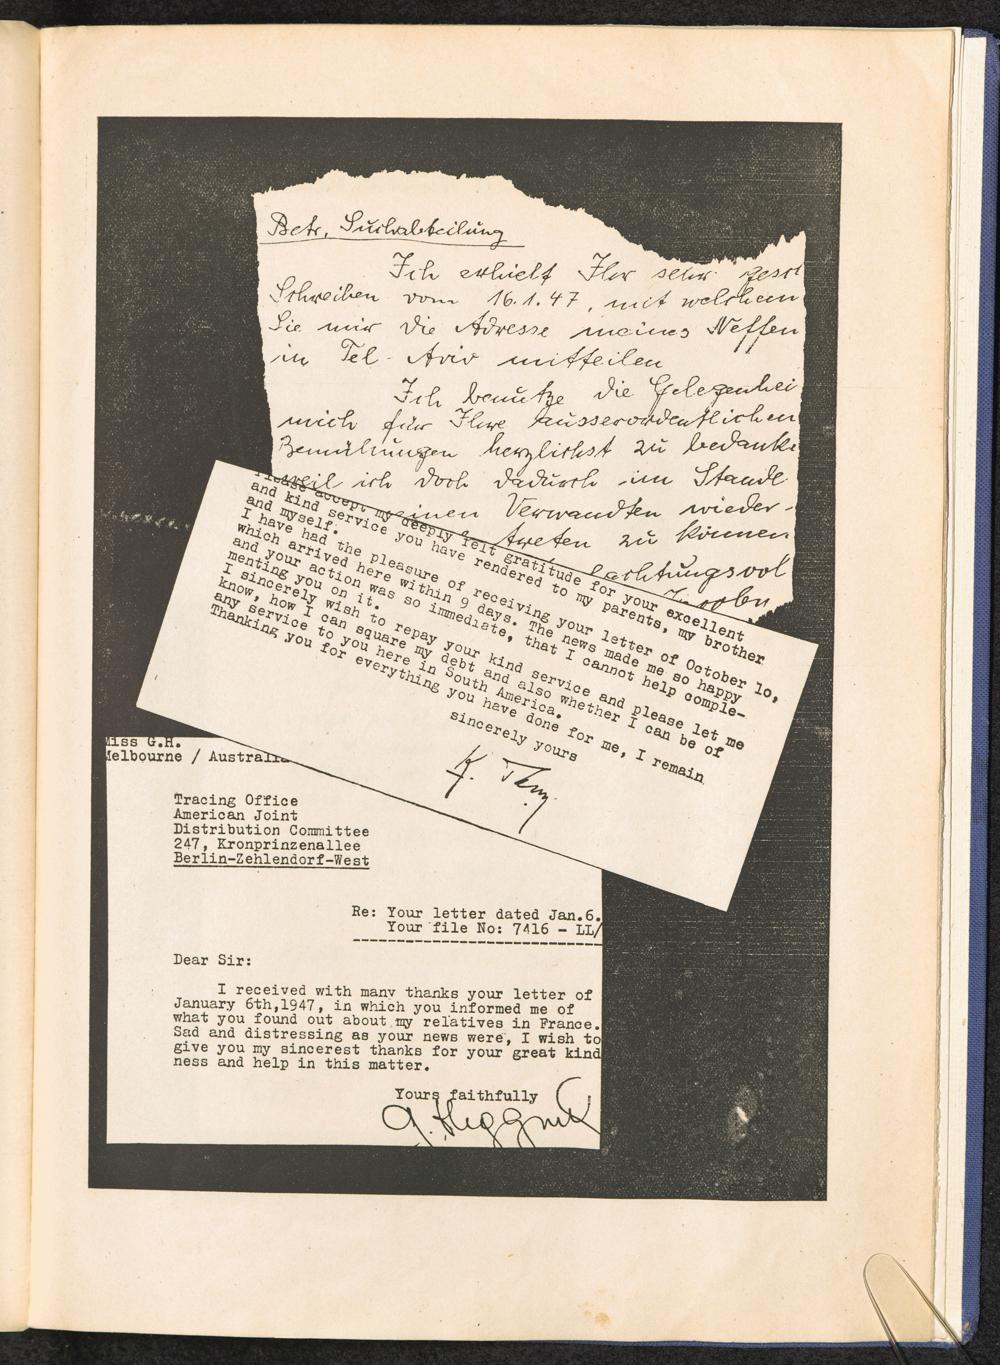 Betr. Suchabteilung
Ich erhielt Ihr sehr gesch
Schreiben vom 16.1.47, mit welchem
Sie mir die Adresse meines Neffen
in Tel-Aviv mitteilen
Ich benutze die Gelegenhei
mich für Ihre ausserordentlichen
Bemühungen herzlichst zu bedanke
weil ich doch dadurch im Stande
meinen Verwandten wieder-
treten zu können
achtungsvol
Please accept my deeply felt gratitude for your excellent
and kind service you have rendered to my parents, my brother
and myself.
I have had the pleasure of receiving your letter of October 10,
which arrived here within 9 days. The news made me so happy
and your action was so immediate, that I cannot help comple-
menting you on it.
I sincerely wish to repay your kind service and please let me
know, how I can square my debt and also whether I can be of
any service to you here in South America.
Thanking you for everything you have done for me, I remain
sincerely yours
Miss G.H.
Melbourne / Australia
Tracing Office
American Joint
Distribution Committee
247, Kronprinzenallee
Berlin-Zehlendorf-West
Re: Your letter dated Jan.6.
Your file No: 7416 - LL/
Dear Sir:
I received with many thanks your letter of
January 6th,1947, in which you informed me of
what you found out about my relatives in France.
Sad and distressing as your news were, I wish to
give you my sincerest thanks for your great kind
ness and help in this matter.
Yours faithfully